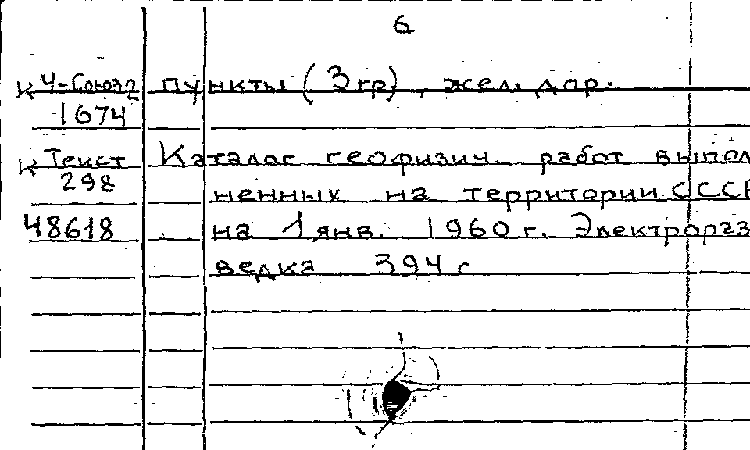 6
к Ч-Союз2 пункты (3гр), жел. дор.
1674
к Текст Каталог геофизич. работ выпол
298 ненных на территории СССР
48618 на 1 янв. 1960 г. Электрораз
ведка 394 с